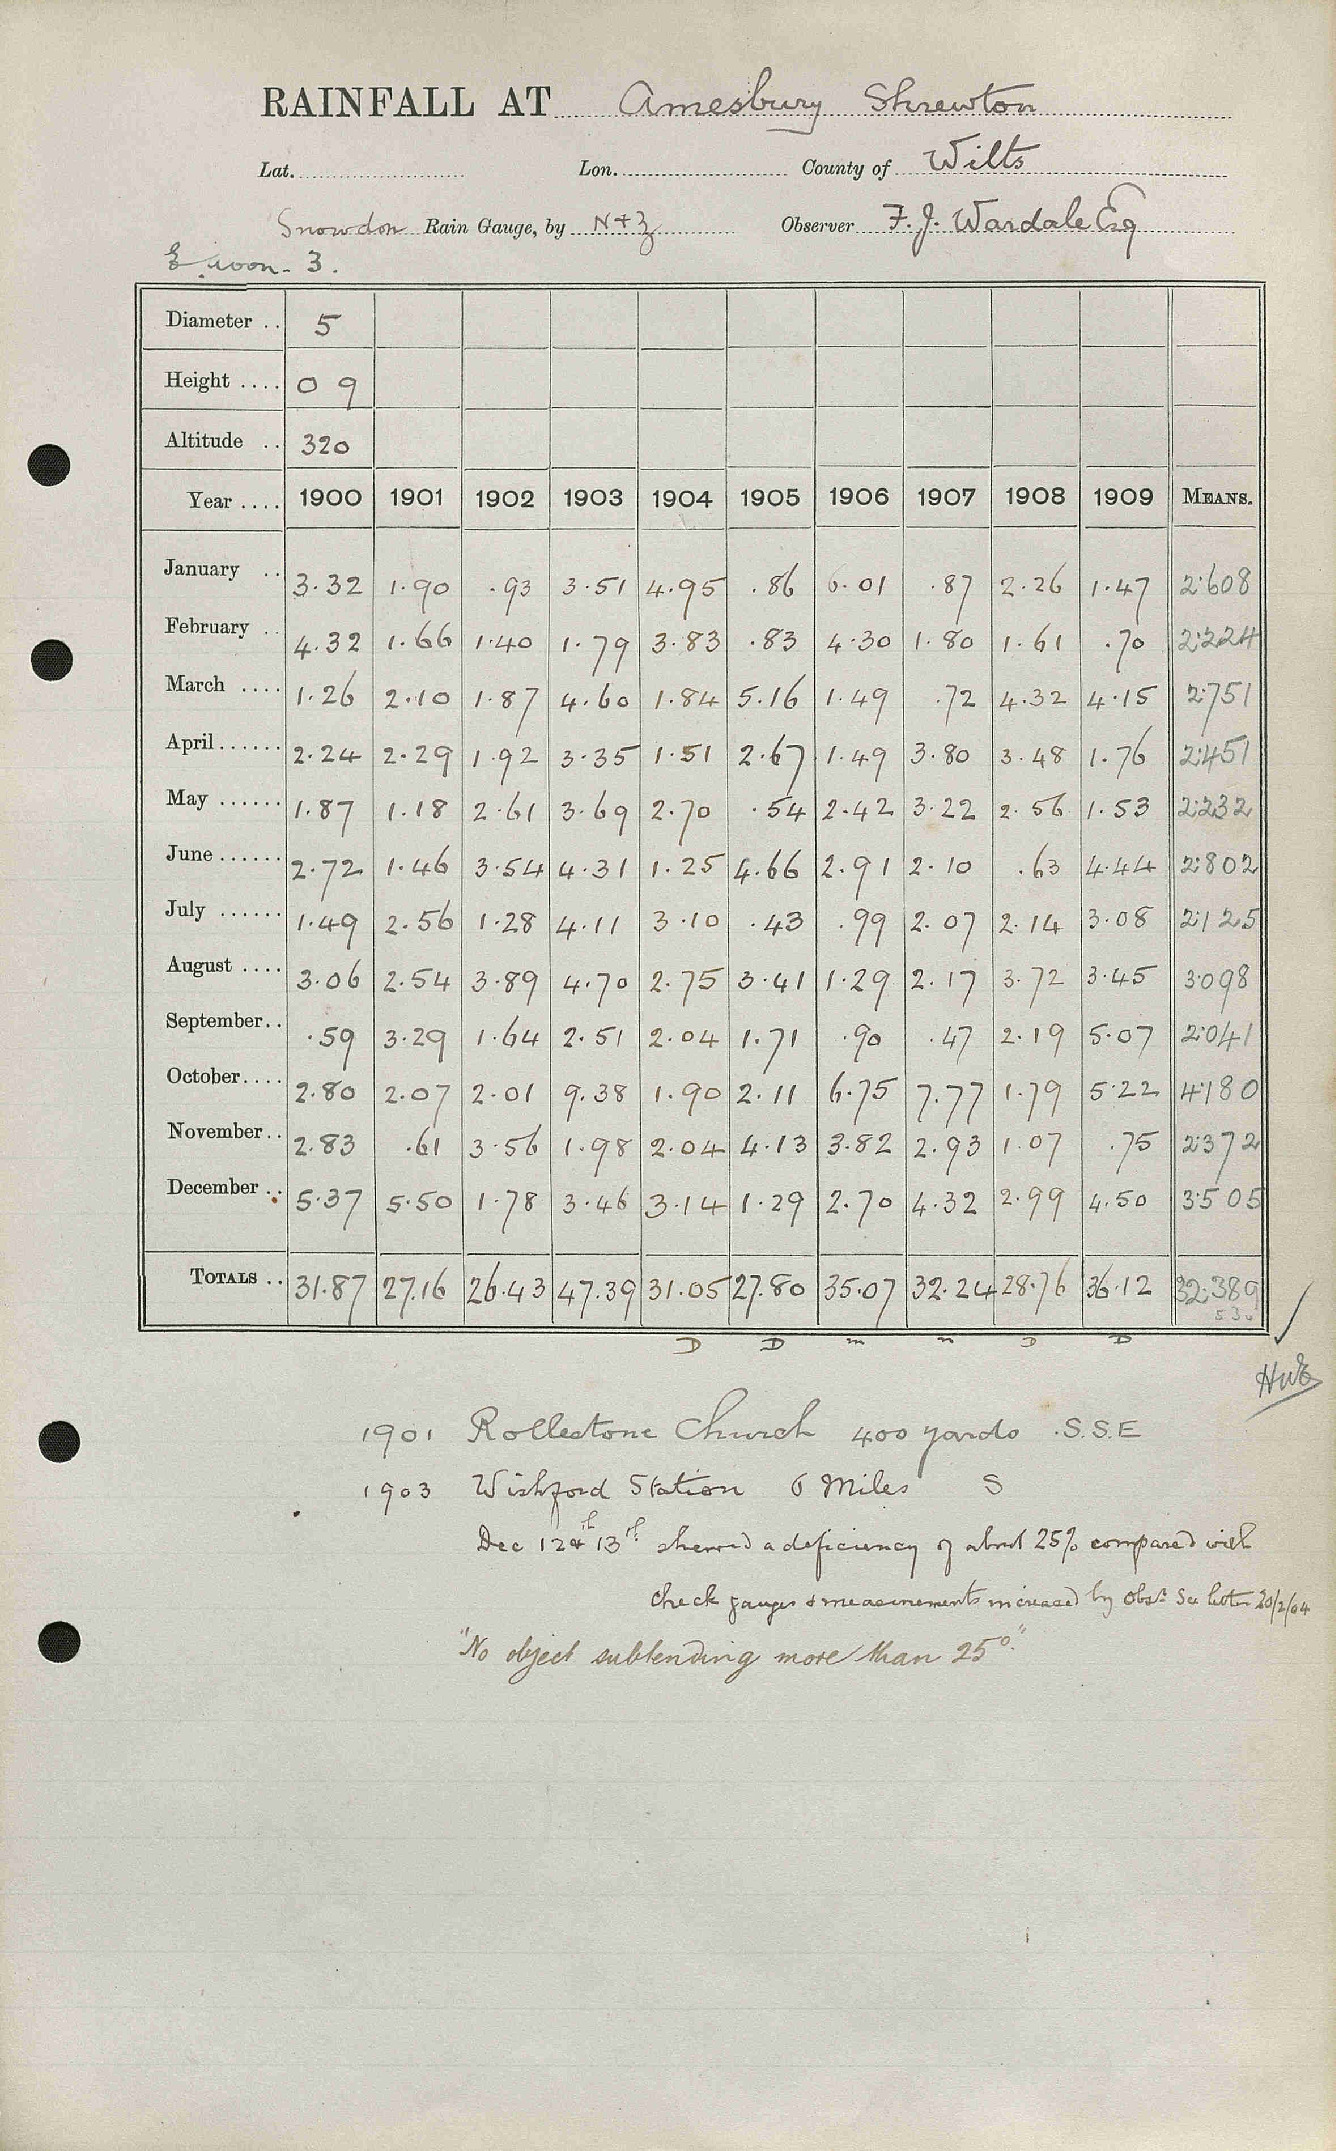 RAINFALL AT Amesbury Shrewton
Lat. Lon. County of Wilts
Snowdon Rain Gauge, by N+Z Observer F. J. Wardale Esq
3.
Diameter .. 5
Height .... 0 9
Altitude .. 320
Year .... 1900 1901 1902 1903 1904 1905 1906 1907 1908 1909 MEANS.
January .. 3.32 1.90 .93 3.51 4.95 .86 6.01 .87 2.26 1.47 2.608
February .. 4.32 1.66 1.40 1.79 3.83 .83 4.30 1.80 1.61 .70 2.224
March .... 1.26 2.10 1.87 4.60 1.84 5.16 1.49 .72 4.32 4.15 2.751
April...... 2.24 2.29 1.92 3.35 1.51 2.67 1.49 3.80 3.48 1.76 2.451
May ...... 1.87 1.18 2.61 3.69 2.70 .54 2.42 3.22 2.56 1.53 2.232
June ...... 2.72 1.46 3.54 4.31 1.25 4.66 2.91 2.10 .63 4.44 2.802
July ...... 1.49 2.56 1.28 4.11 3.10 .43 .99 2.07 2.14 3.08 2.125
August .... 3.06 2.54 3.89 4.70 2.75 3.41 1.29 2.17 3.72 3.45 3.098
September.. .59 3.29 1.64 2.51 2.04 1.71 .90 .47 2.19 5.07 2.041
October.... 2.80 2.07 2.01 9.38 1.90 2.11 6.75 7.77 1.79 5.22 4.180
November.. 2.83 .61 3.56 1.98 2.04 4.13 3.82 2.93 1.07 .75 2.372
December .. 5.37 5.50 1.78 3.46 3.14 1.29 2.70 4.32 2.99 4.50 3.505
TOTALS .. 31.87 27.16 26.43 47.39 31.05 27.80 35.07 32.24 28.76 36.12 32.389
D D m m D D
1901 Rollestone Church 400 yards S.S.E
1903 Wishford Station 6 Miles S
Dec 12th & 13th shewed a deficiency of about 25% compared with
check gauges & measurements increased by Obsr. See letter 20/2/04
"No object subtending more than 25°."